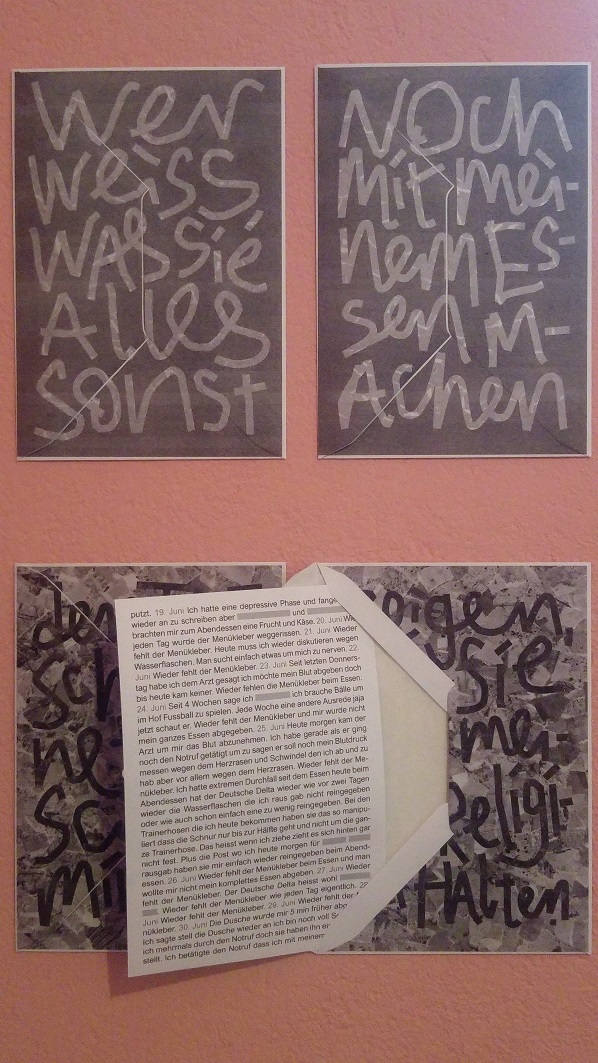 Wer
weiss,
was sie
Alles
sonst
Noch
Mit mei-
nem Es-
sen M-
Achen
den
Sch
ne
Sc
Mi
eigen,
sie
mei-
Religi-
Halten
putzt. 19. Juni Ich hatte eine depressive Phase und fange
wieder an zu schreiben aber und
brachten mir zum Abendessen eine Frucht und Käse. 20. Juni Wie
jeden Tag wurde der Menükleber weggerissen. 21. Juni Wieder
fehlt der Menükleber. Heute muss ich wieder diskutieren wegen
Wasserflaschen. Man sucht einfach etwas um mich zu nerven. 22.
Juni Wieder fehlt der Menükleber. 23. Juni Seit letzten Donners-
tag habe ich dem Arzt gesagt ich möchte mein Blut abgeben doch
bis heute kam keiner. Wieder fehlen die Menükleber beim Essen.
24. Juni Seit 4 Wochen sage ich ich brauche Bälle um
im Hof Fussball zu spielen. Jede Woche eine andere Ausrede jaja
jetzt schaut er. Wieder fehlt der Menükleber und mir wurde nicht
mein ganzes Essen abgegeben. 25. Juni Heute morgen kam der
Arzt um mir das Blut abzunehmen. Ich habe gerade als er ging
noch den Notruf getätigt um zu sagen er soll noch mein Blutdruck
messen wegen dem Herzrasen und Schwindel den ich ab und zu
hab aber vor allem wegen dem Herzrasen. Wieder fehlt der Me-
nükleber. Ich hatte extremen Durchfall seit dem Essen heute beim
Abendessen hat der Deutsche Delta wieder wie vor zwei Tagen
wieder die Wasserflaschen die ich raus gab nicht reingegeben
oder wie auch schon einfach eine zu wenig reingegeben. Bei den
Trainerhosen die ich heute bekommen haben sie das so manipu-
liert dass die Schnur nur bis zur Hälfte geht und nicht um die gan-
ze Trainerhose. Das heisst wenn ich ziehe zieht es sich hinten gar
nicht fest. Plus die Post wo ich heute morgen für
rausgab haben sie mir einfach wieder reingegeben beim Abend-
essen. 26. Juni Wieder fehlt der Menükleber beim Essen und man
wollte mir nicht mein komplettes Essen abgeben. 27. Juni Wieder
fehlt der Menükleber. Der Deutsche Delta heisst wohl
Wieder fehlt der Menükleber wie jeden Tag eigentlich. 28.
Juni Wieder fehlt der Menükleber. 29. Juni Wieder fehlt der
nükleber. 30. Juni Die Dusche wurde mir 5 min früher
Ich sagte stell die Dusche wieder an ich bin noch voll
ich mehrmals durch den Notruf doch sie haben ihn
stellt. Ich betätigte den Notruf dass ich mit meinem